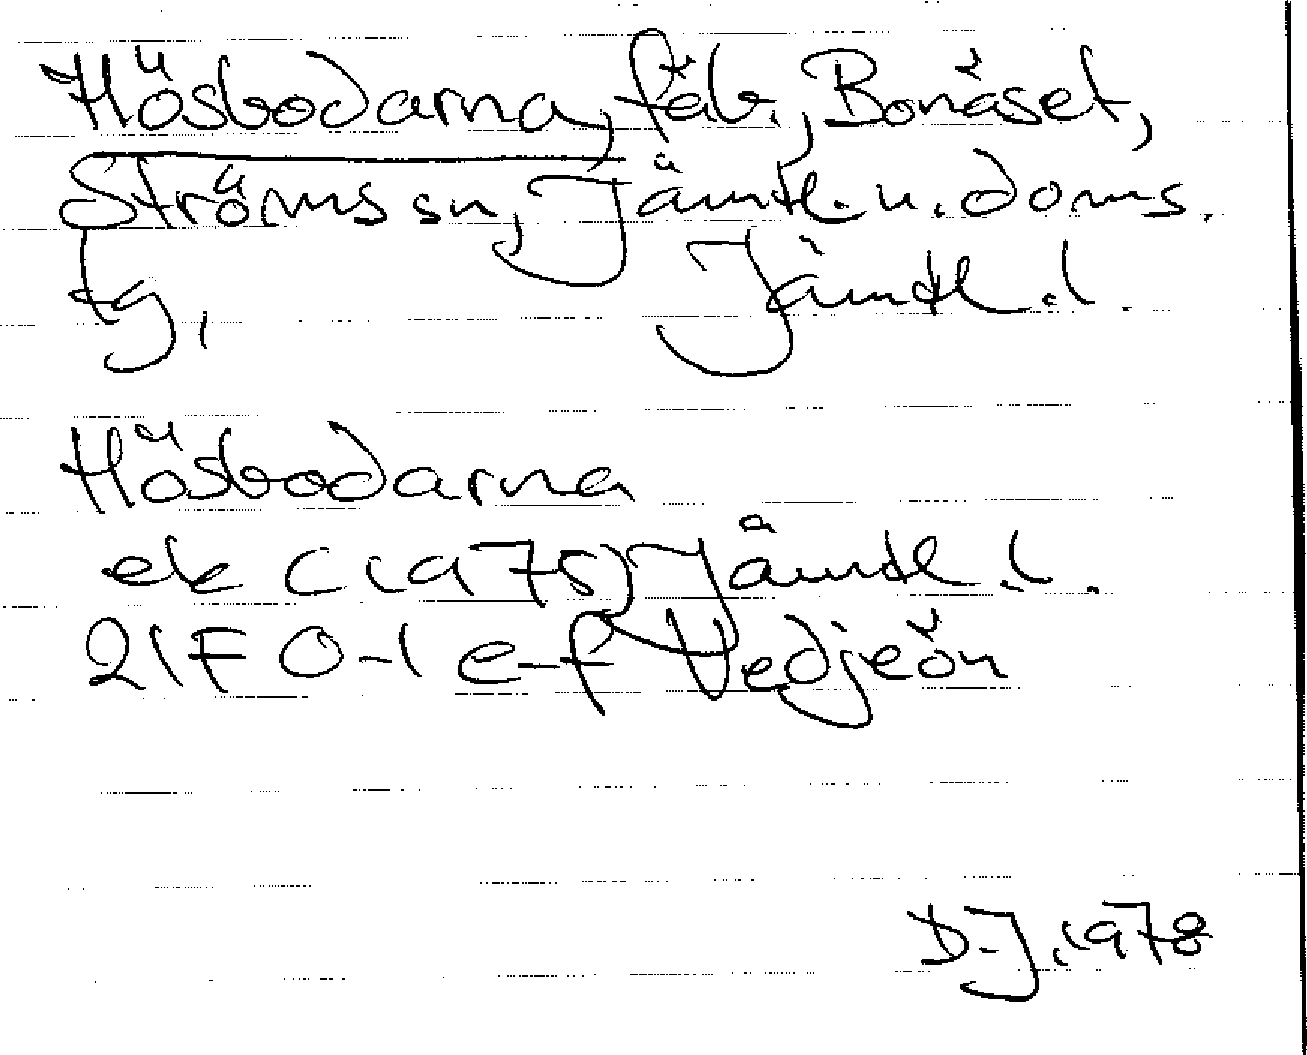 Hösbodarna, fäb., Bonäset,
Ströms sn, Jämtl. n. doms.
tg, Jämtl. l.
Hösbodarna
ek (1975) Jämtl. l.
21F 0-1 e-f Vedjeön
D-J. 1978